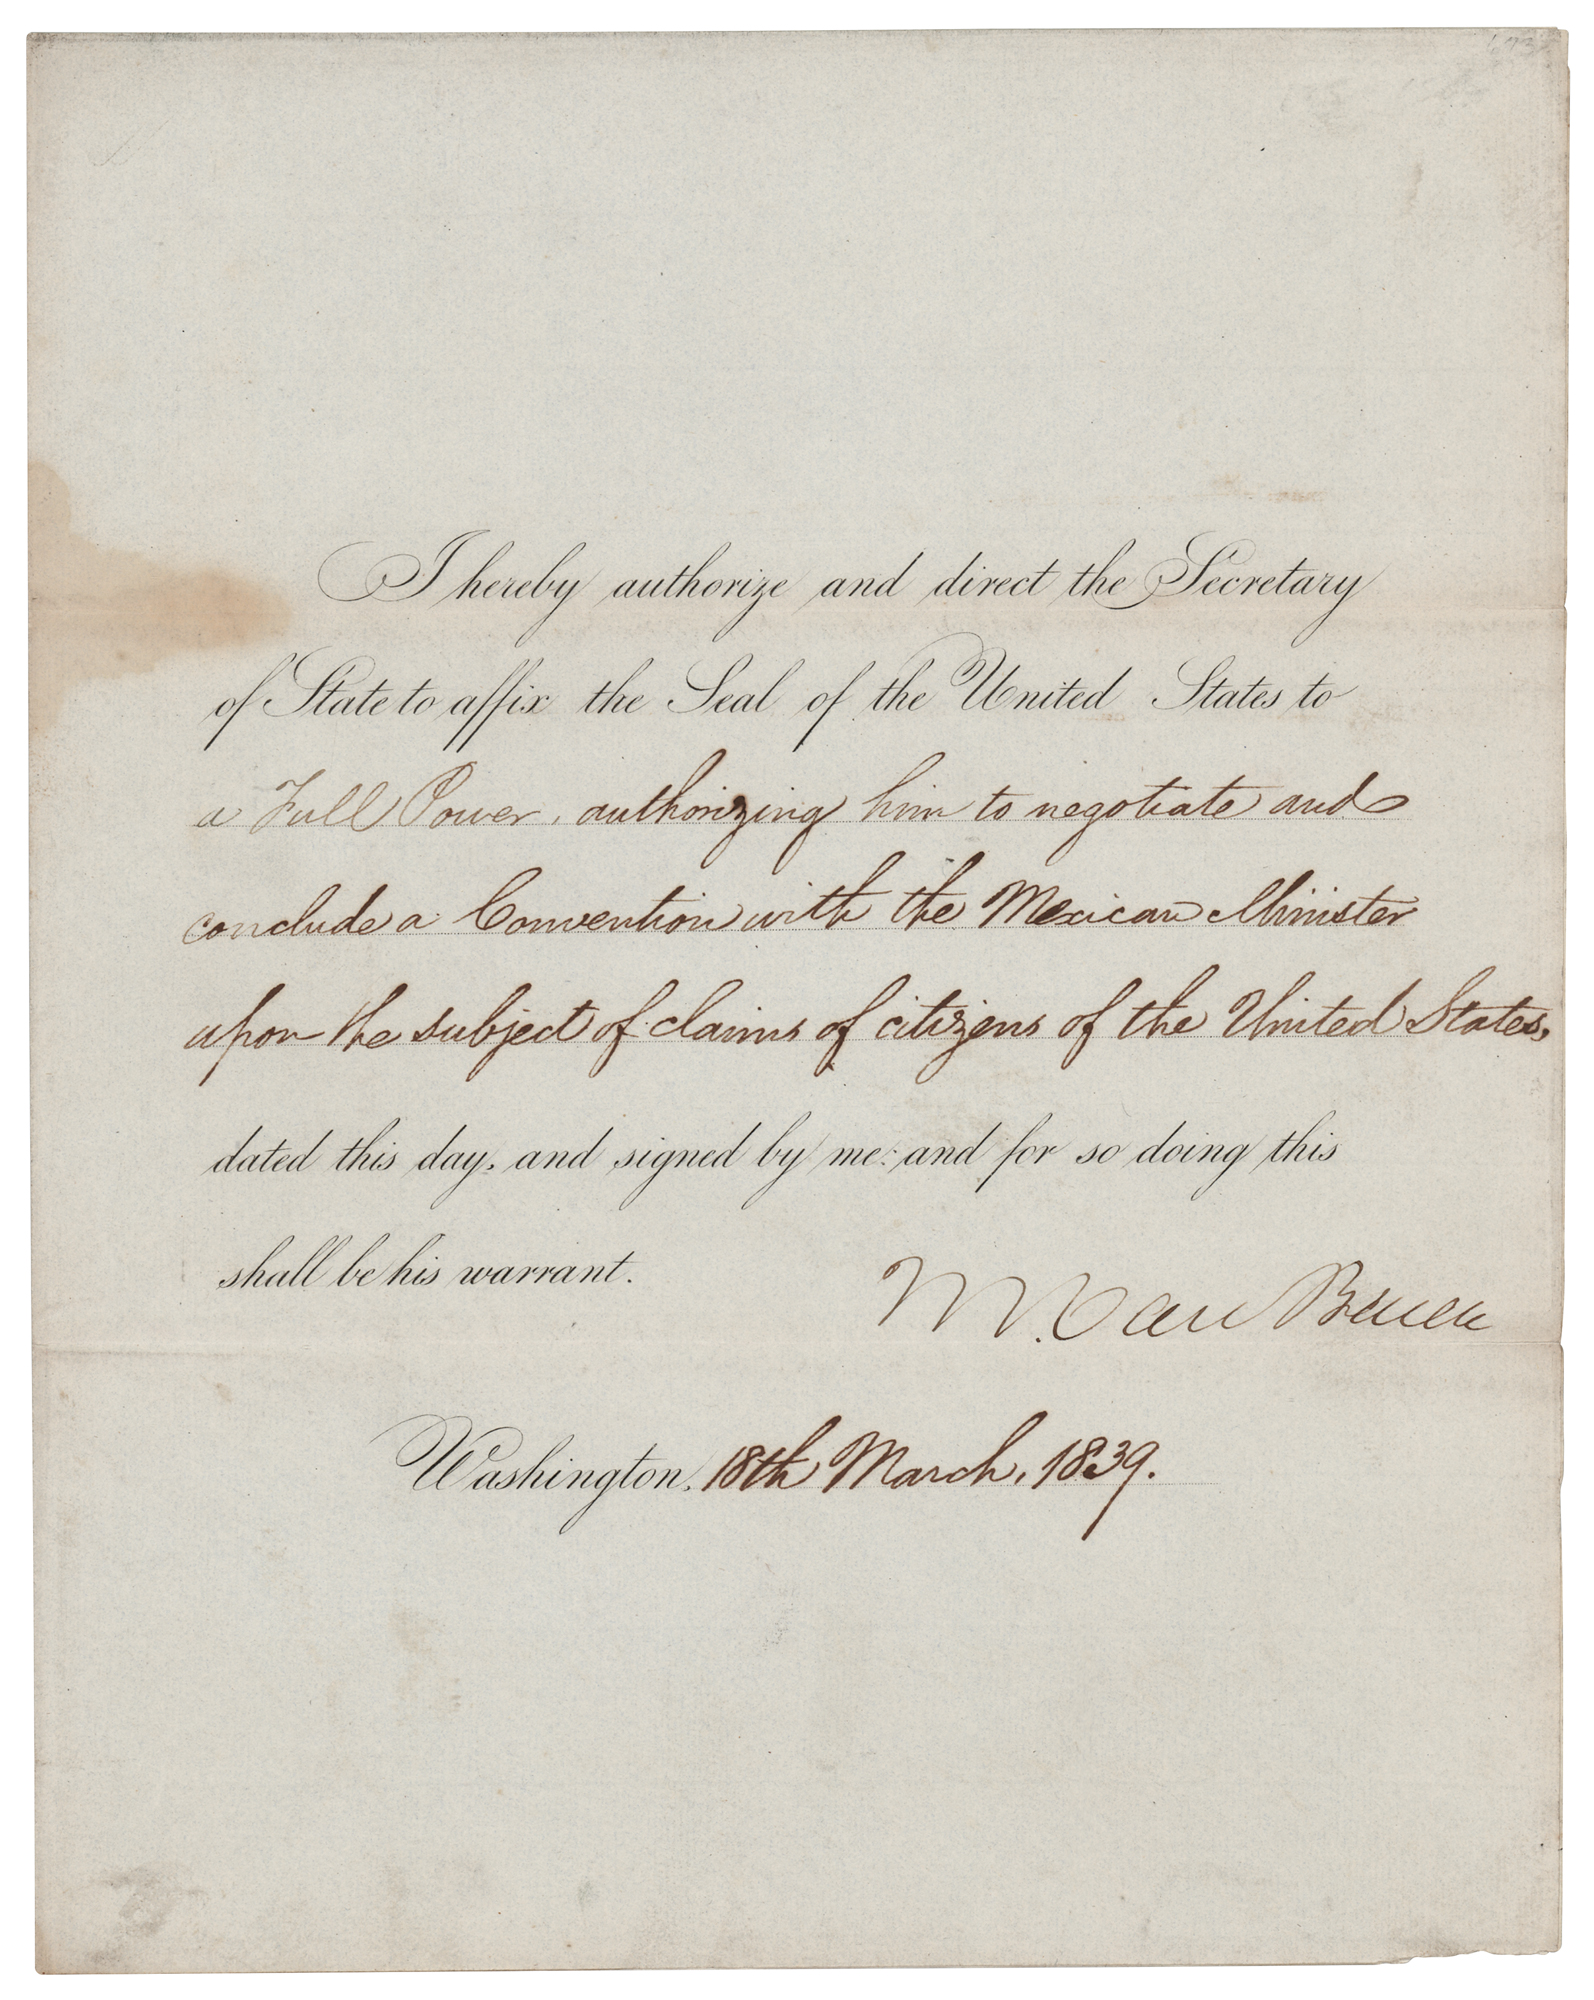 I hereby authorize and direct the Secretary
of State to affix the Seal of the United States to
a Full Power, authorizing him to negotiate and
conclude a Convention with the Mexican Minister
upon the subject of claims of citizens of the United States,
dated this day, and signed by me: and for so doing this
shall be his warrant.
M. Van Buren
Washington, 18th March, 1839.